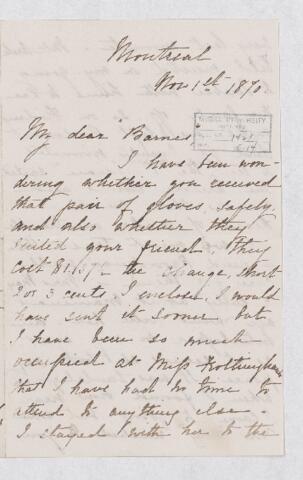 Montreal
Nov 1st 1870
My dear Barnes
I have been won-
dering whether you received
that pair of gloves safely,
and also whether they
suited your friend. They
cost $1. - the change, short
2 or 3 cents, I enclose. I would
have sent it sooner but
I have been so much
occupied at Miss
that I have had no time to
attend to anything else -
I stayed with her to the